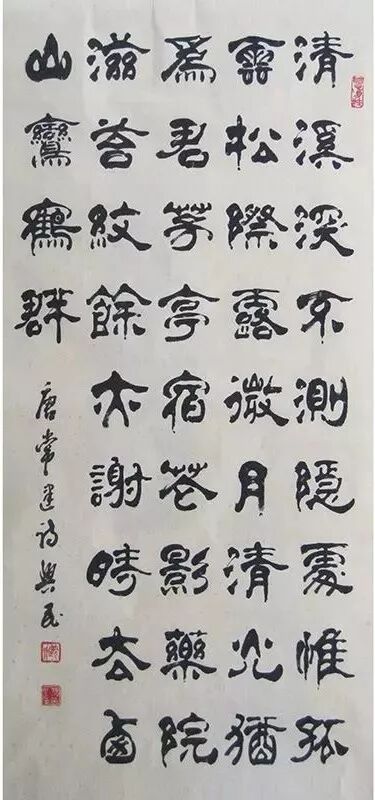 清溪深不測隱處惟孤
雲松際露微月清光猶
爲君茅亭宿花影藥院
滋苔紋餘亦謝時去卥
山鸞鶴群
唐常建诗興民